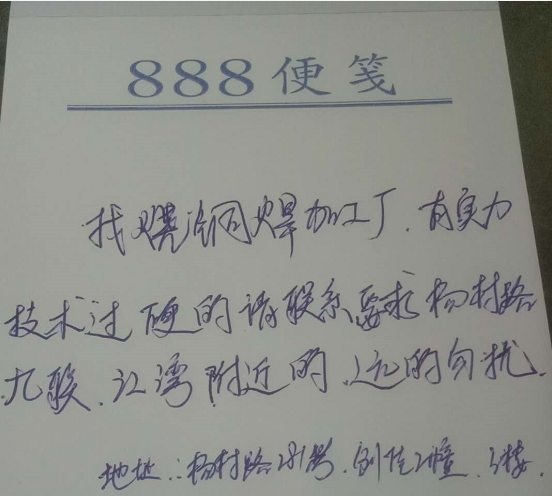 888便笺
找烧铜焊加工厂.有实力
技术过硬的请联系要求杨村路
九联.江湾附近的.远的勿扰.
地址:杨村路281号.创佳2幢.3楼.